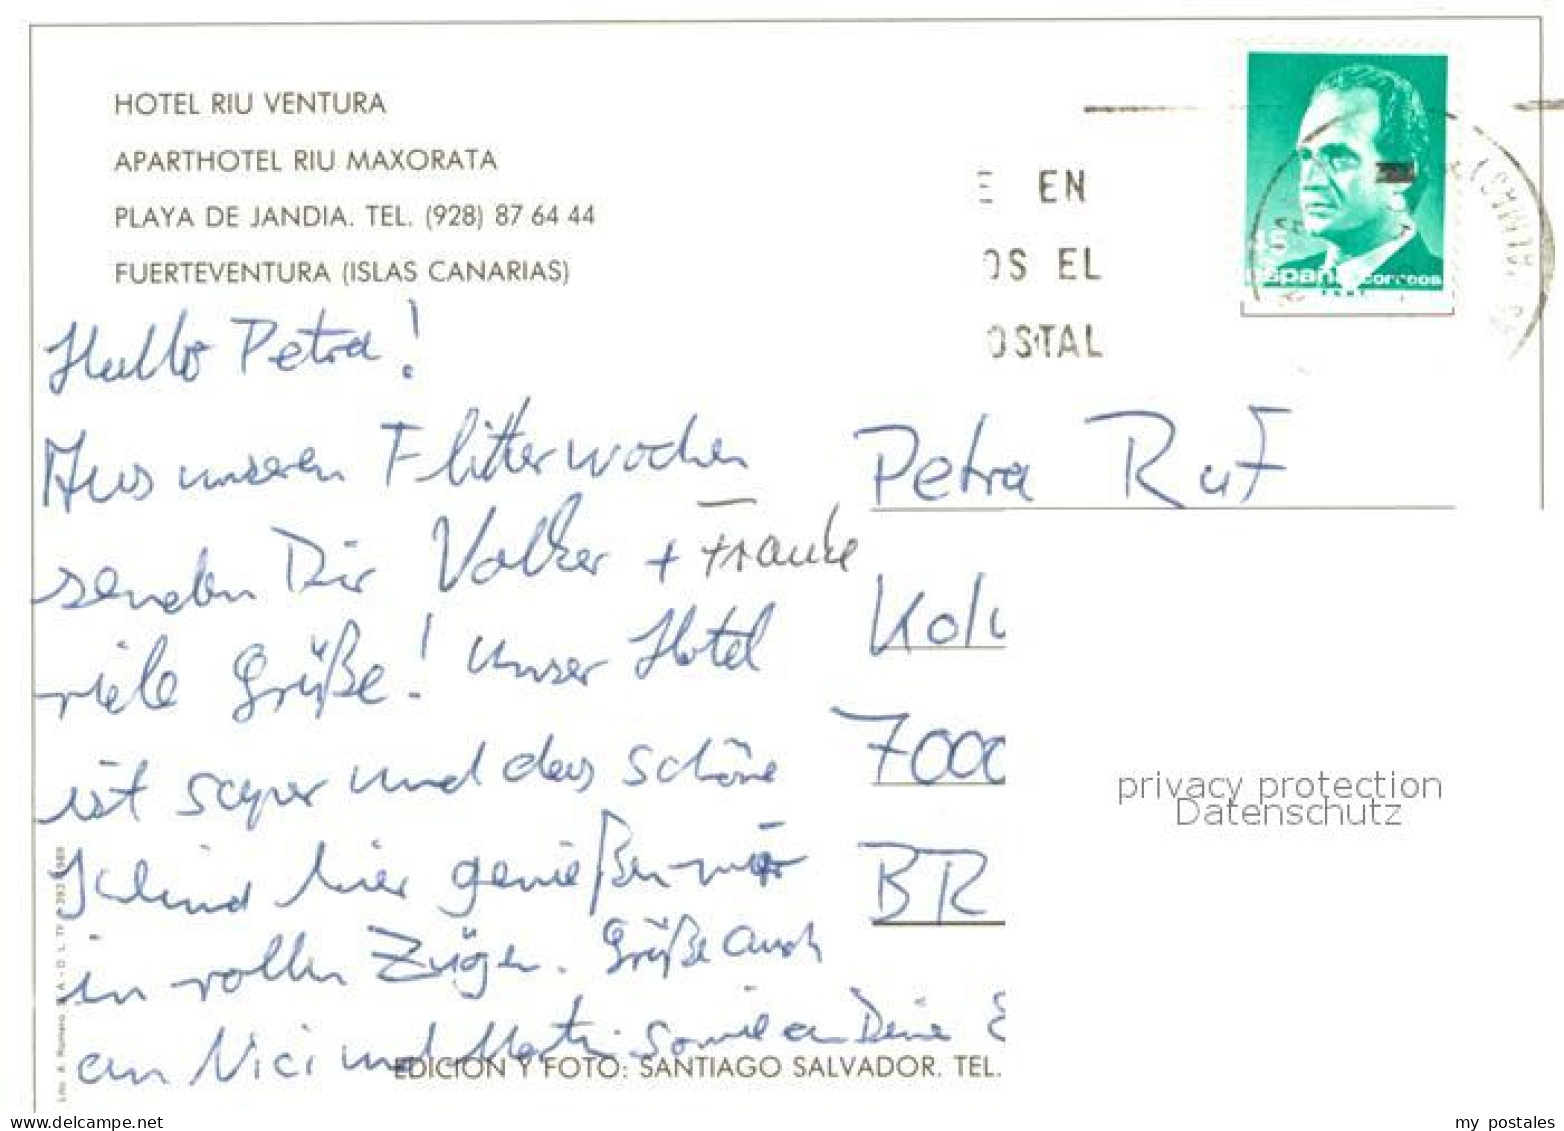 HOTEL RIU VENTURA
APARTHOTEL RIU MAXORATA
PLAYA DE JANDIA. TEL. (928) 87 64 44
FUERTEVENTURA (ISLAS CANARIAS)
E EN
OS EL
OSTAL
España correos
Hallo Petra!
Aus unseren Flitterwochen
senden Dir Volker + Frauke
viele Grüße! Unser Hotel
ist super und das schöne
hier genießen wir
in vollen Zügen. Grüße auch
an Nici und Martin sowie an Deine E
Petra Ruf
Kol
7000
BR
privacy protection
Datenschutz
EDICION Y FOTO: SANTIAGO SALVADOR. TEL.
www.delcampe.net
my postales